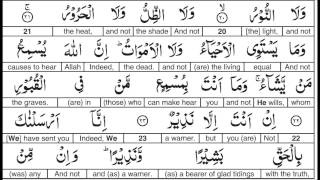 وَلَا النُّوْرُ ﴿٢٠﴾ وَلَا الظِّلُّ وَلَا الْحَرُوْرُ ﴿٢١﴾
21 the heat, and not the shade And not 20 [the] light, and not
وَمَا يَسْتَوِي الْاَحْيَآءُ وَلَا الْاَمْوَاتُ ؕ اِنَّ اللّٰهَ يُسْمِعُ
causes to hear Allah Indeed, the dead. and not (are) the living equal And not
مَنْ يَّشَآءُ ۚ وَمَآ اَنْتَ بِمُسْمِعٍ مَّنْ فِي الْقُبُوْرِ
the graves. (are) in (those) who can make hear you and not He wills, whom
﴿٢٢﴾ اِنْ اَنْتَ اِلَّا نَذِيْرٌ ﴿٢٣﴾ اِنَّآ اَرْسَلْنٰكَ
[We] have sent you Indeed, We 23 a warner. but you (are) Not 22
بِالْحَقِّ بَشِيْرًا وَّنَذِيْرًا ؕ وَاِنْ مِّنْ
(was) any And not and (as) a warner. (as) a bearer of glad tidings with the truth,